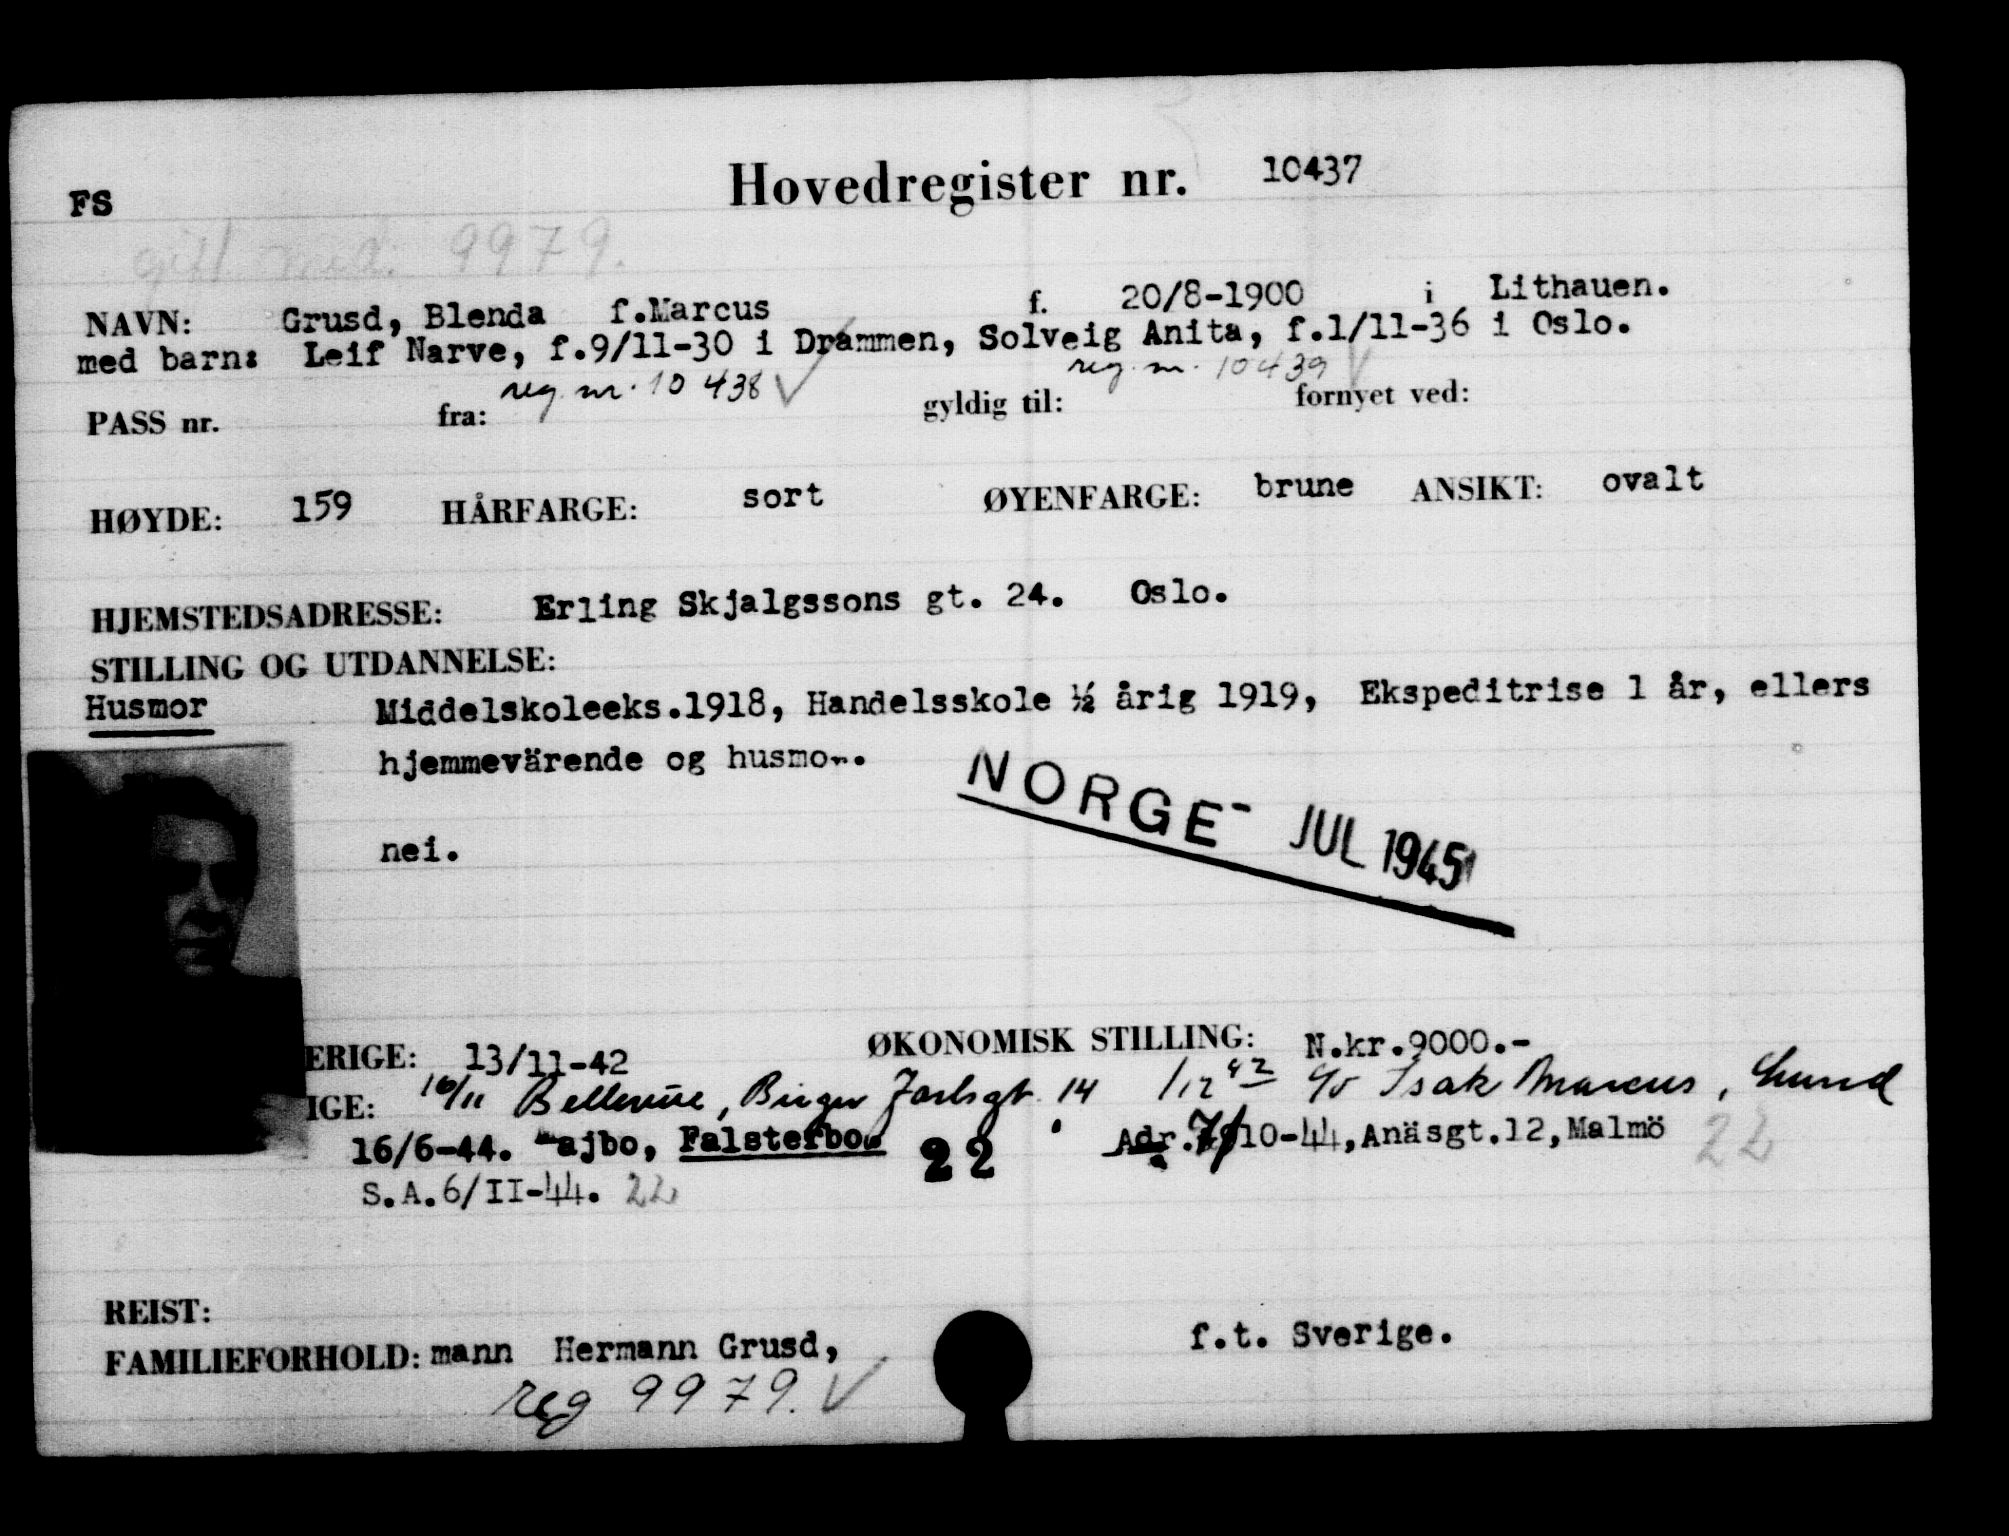 Hovedregister nr. 10437
FS
gift med. 9979.
NAVN: Grusd, Blenda f.Marcus f. 20/8-1900 i Lithauen.
med barn: Leif Narve, f.9/11-30 i Drammen, Solveig Anita, f.1/11-36 i Oslo.
reg. nr. 10438 reg. nr. 10439
PASS nr. fra: gyldig til: fornyet ved:
HØYDE: 159 HÅRFARGE: sort ØYENFARGE: brune ANSIKT: ovalt
HJEMSTEDSADRESSE: Erling Skjalgssons gt. 24. Oslo.
STILLING OG UTDANNELSE:
Husmor Middelskoleeks.1918, Handelsskole ½ årig 1919, Ekspeditrise 1 år, ellers
hjemmevärende og husmor.
NORGE - JUL 1945
nei.
ERIGE: 13/11-42 ØKONOMISK STILLING: N.kr.9000.-
IGE: 16/11 Bellevue, Birger Jarlsgt. 14 1/12 42 c/o Isak Marcus, Lund
16/6-44. Majbo, Falsterbo. 22 Adr. 10-44, Anäsgt.12, Malmö 22
S.A.6/II-44. 22
REIST:
FAMILIEFORHOLD: mann Hermann Grusd, f.t. Sverige.
reg 9979.